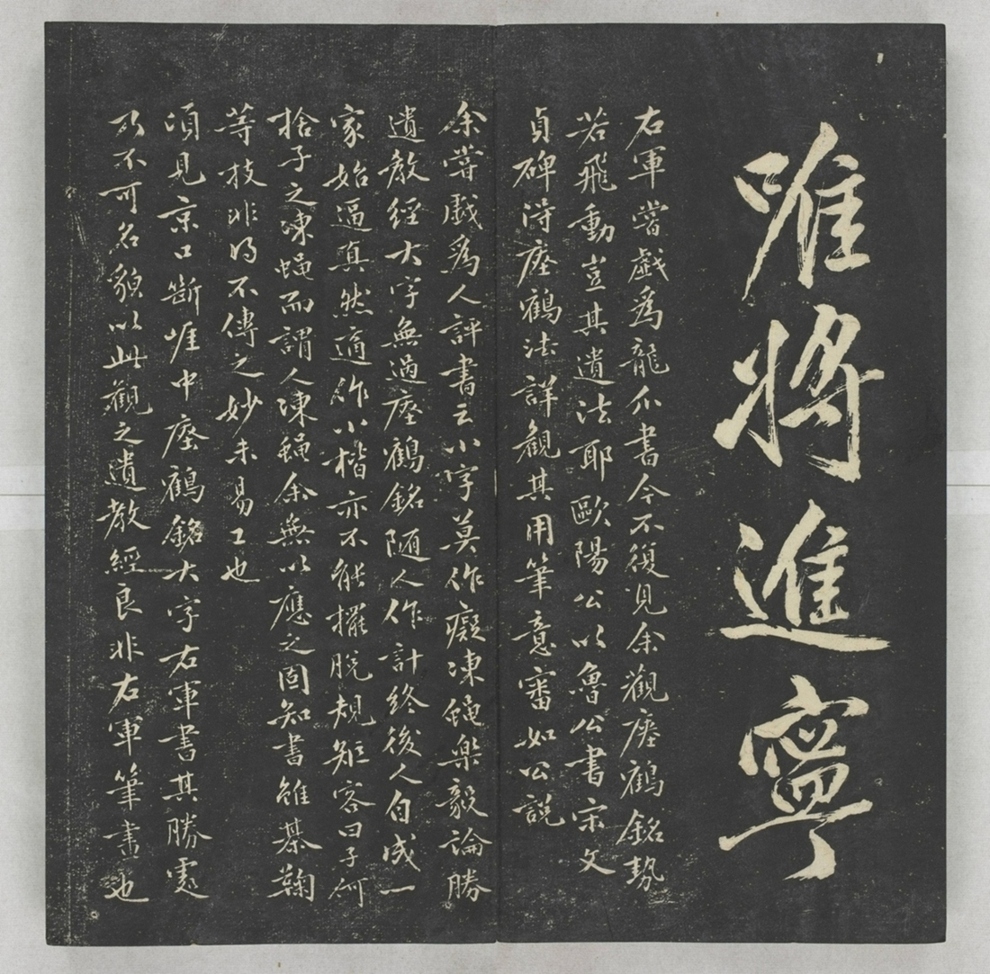 唯將進寧
右軍嘗戲為龍爪書今不復見余觀瘞鶴銘勢
若飛動豈其遺法耶歐陽公以魯公書宋文
貞碑得瘞鶴法詳觀其用筆意審如公說
余嘗戲為人評書云小字莫作癡凍蠅樂毅論勝
遺教經大字無過瘞鶴銘隨人作計終後人自成一
家始逼真然適作小楷亦不能擺脫規矩客曰子何
捨子之凍蠅而謂人凍蠅余無以應之固知書雖棊鞠
等技非得不傳之妙未易工也
頃見京口斷崖中瘞鶴銘大字右軍書其勝處
乃不可名貌以此觀之遺教經良非右軍筆畫也